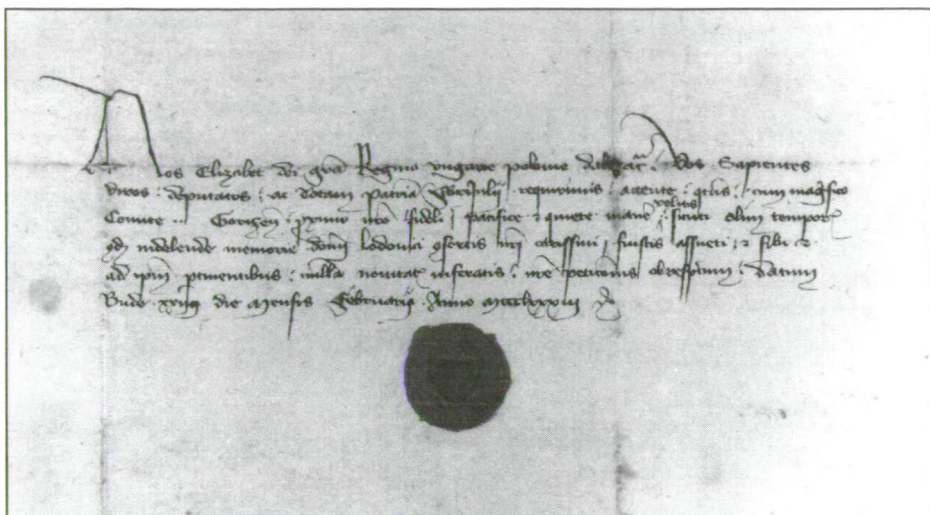 Nos Elizabet dei gra Regina ungarie polonie dalmacie Vos Sapientes
viros deputatos ac totam patriam forijulii requirimus attente qtus cum magnifico
Comite Goricie nro fideli pacifice et quiete manere velitis sicuti olim tempore
indelende memorie domini Lodovici nri carissimi fuistis assueti et sibi et
ad ipm ptinentibus nulla novitate inferatis nre peticionis ob respectum datum
Bude die mensis Februarii Anno mccclxxxiii